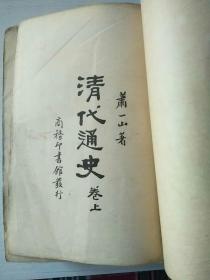 蕭一山著
清代通史 卷上
商務印書館發行